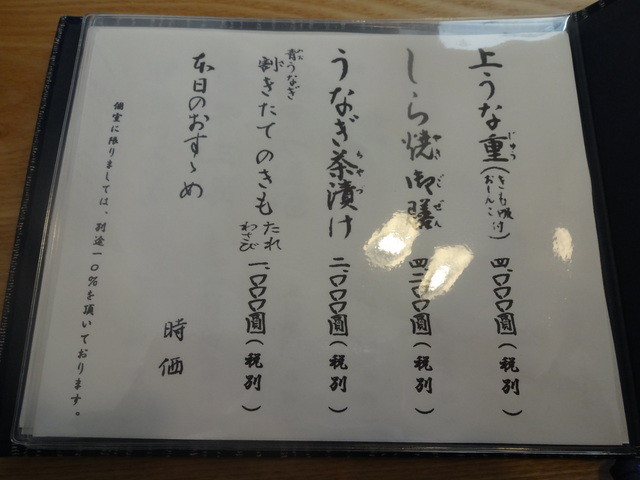 上うな重(きも吸付 おしんこ) 四、〇〇〇圓(税別)
じゅう
しら焼御膳 四、二〇〇圓(税別)
やき ごぜん
うなぎ茶漬け 二、〇〇〇圓(税別)
ちゃづ
青うなぎ
割きたてのきも たれ わさび 一、〇〇〇圓(税別)
本日のおすゝめ 時価
個室に限りましては、別途一〇%を頂いております。